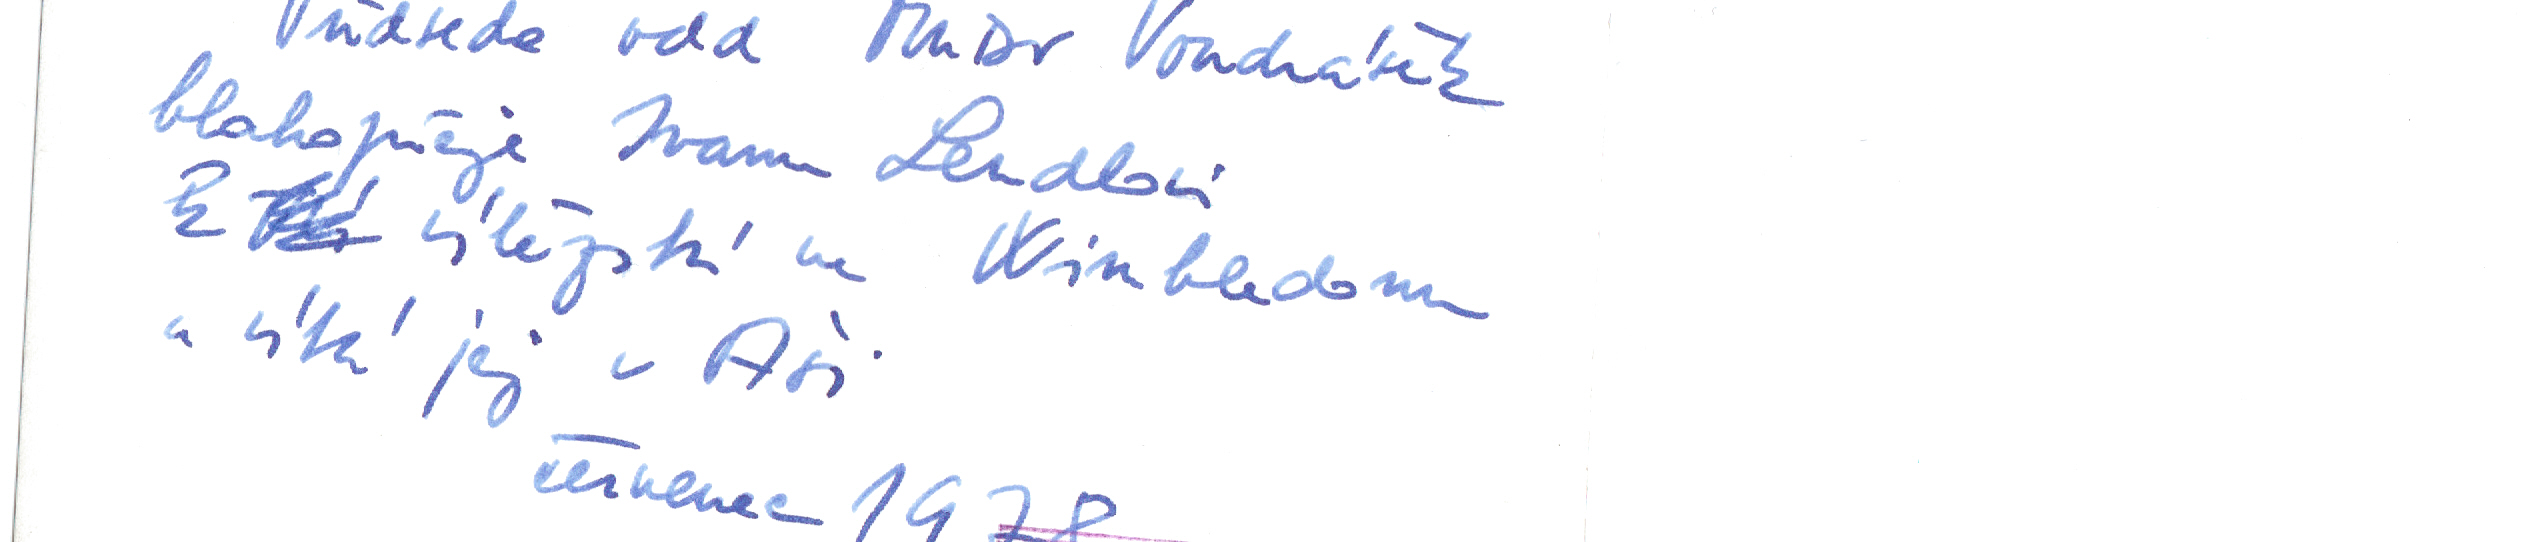 Předseda odd MUDr Vondráček
blahopřeje Ivanu Lendlovi
k vítězství ve Wimbledonu
a vítá jej v Aši.
červenec 1978